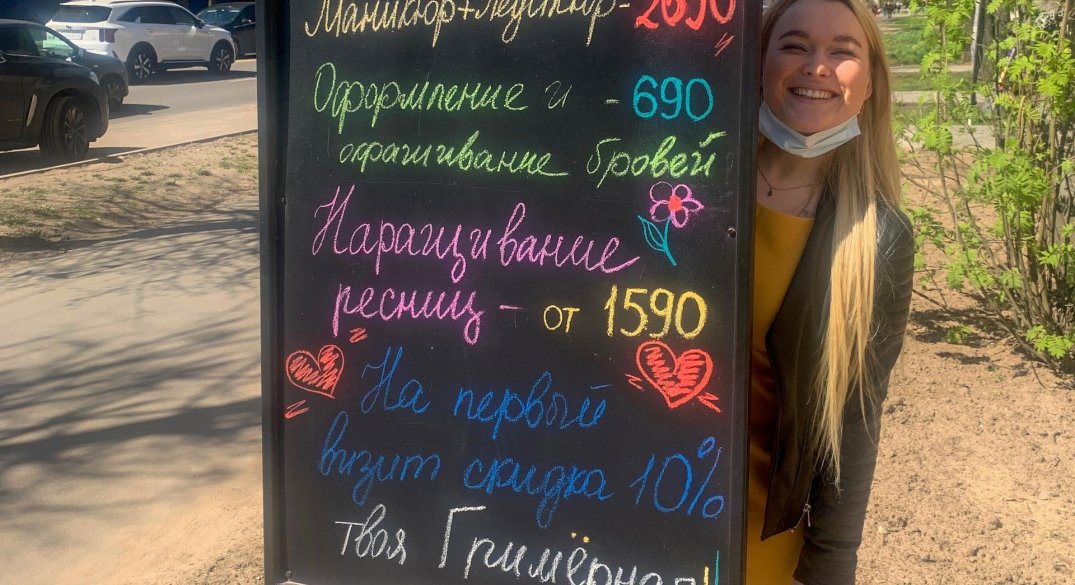 Маникюр+педикюр-2690
Оформление и -690
окрашивание бровей
Наращивание
ресниц - от 1590
На первый
визит скидка 10%
твоя Гримёрная!